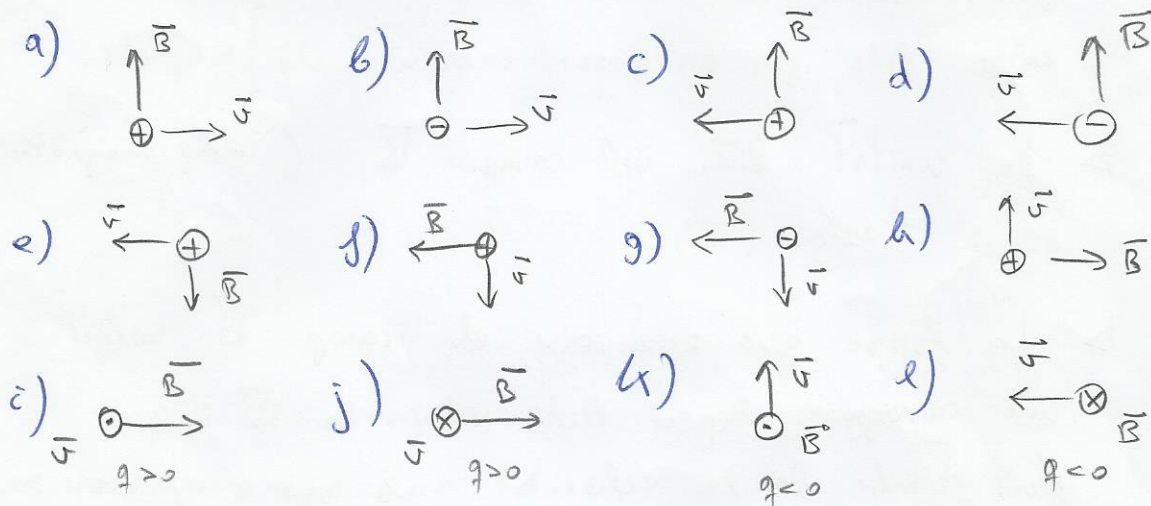 a) B̅ ⊕ v̅ b) B̅ ⊖ v̅ c) B̅ v̅ ⊕ d) B̅ v̅ ⊖
e) v̅ ⊕ B̅ f) B̅ ⊕ v̅ g) B̅ ⊖ v̅ h) v̅ ⊕ B̅
i) v̅ ⊙ B̅ q>0 j) v̅ ⊗ B̅ q>0 k) v̅ ⊙ B̅ q<0 l) v̅ ⊗ B̅ q<0